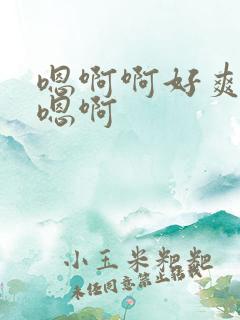 嗯啊啊好爽
嗯啊
小玉米粑粑
未经同意禁止转载